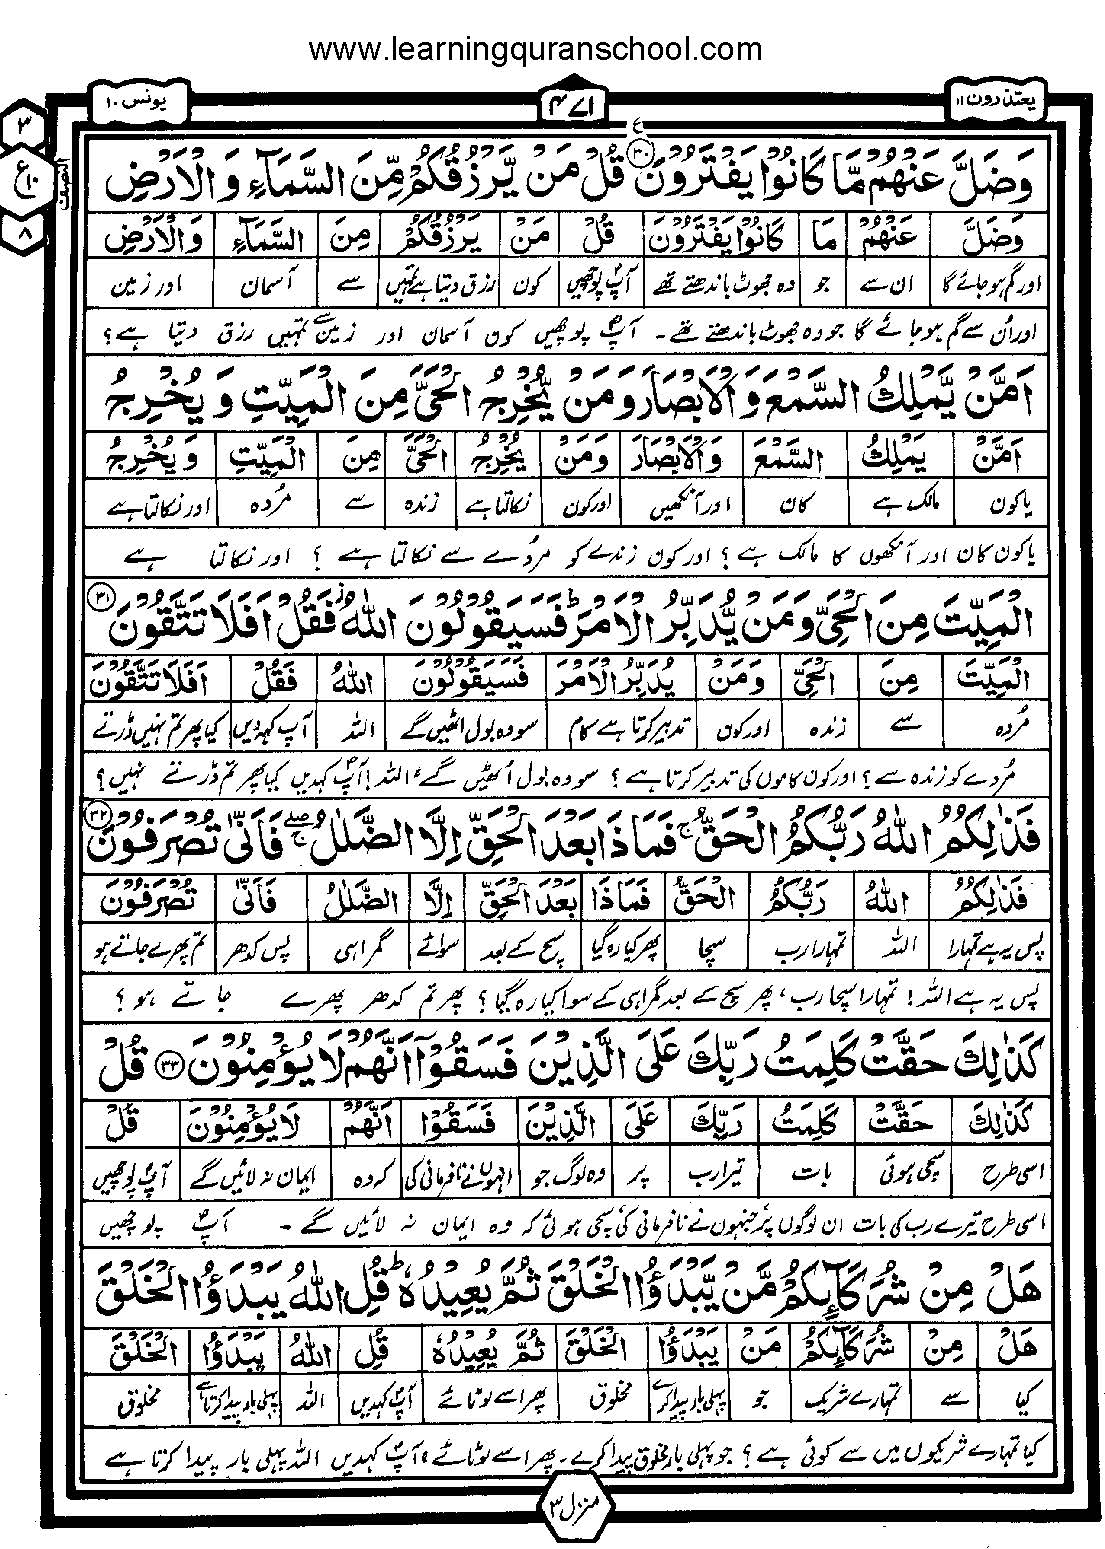 www.learningquranschool.com
یونس ۱۰
۴۷۱
یعتذرون ۱۱
۳
ع ۱۰
۸
النصف
وَضَلَّ عَنْهُمْ مَّا كَانُوْا يَفْتَرُوْنَ ۳۰ قُلْ مَنْ يَّرْزُقُكُمْ مِّنَ السَّمَآءِ وَ الْاَرْضِ
وَضَلَّ عَنْهُمْ مَا كَانُوْا يَفْتَرُوْنَ قُلْ مَنْ يَرْزُقُكُمْ مِنَ السَّمَآءِ وَالْاَرْضِ
اور گم ہو جائے گا ان سے جو وہ جھوٹ باندھتے تھے آپؐ پوچھیں کون رزق دیتا ہے تمہیں سے آسمان اور زمین
اور اُن سے گم ہو جائے گا جو وہ جھوٹ باندھتے تھے۔ آپؐ پوچھیں کون آسمان اور زمین سے تمہیں رزق دیتا ہے؟
اَمَّنْ يَّمْلِكُ السَّمْعَ وَالْاَبْصَارَ وَمَنْ يُّخْرِجُ الْحَيَّ مِنَ الْمَيِّتِ وَ يُخْرِجُ
اَمَّنْ يَمْلِكُ السَّمْعَ وَالْاَبْصَارَ وَمَنْ يُخْرِجُ الْحَيَّ مِنَ الْمَيِّتِ وَيُخْرِجُ
یا کون مالک ہے کان اور آنکھیں اور کون نکالتا ہے زندہ سے مُردہ اور نکالتا ہے
یا کون کان اور آنکھوں کا مالک ہے؟ اور کون زندے کو مردے سے نکالتا ہے؟ اور نکالتا ہے
الْمَيِّتَ مِنَ الْحَيِّ وَمَنْ يُّدَبِّرُ الْاَمْرَ ط فَسَيَقُوْلُوْنَ اللّٰهُ ج فَقُلْ اَفَلَا تَتَّقُوْنَ ۳۱
الْمَيِّتَ مِنَ الْحَيِّ وَمَنْ يُدَبِّرُ الْاَمْرَ فَسَيَقُوْلُوْنَ اللّٰهُ فَقُلْ اَفَلَا تَتَّقُوْنَ
مُردہ سے زندہ اور کون تدبیر کرتا ہے کام سو وہ بول اٹھیں گے اللہ آپ کہدیں کیا پھر تم نہیں ڈرتے
مُردے کو زندہ سے؟ اور کون کاموں کی تدبیر کرتا ہے؟ سو وہ بول اُٹھیں گے "اللہ"! آپؐ کہدیں کیا پھر تم ڈرتے نہیں؟
فَذٰلِكُمُ اللّٰهُ رَبُّكُمُ الْحَقُّ ج فَمَاذَا بَعْدَ الْحَقِّ اِلَّا الضَّلٰلُ ج صلے فَاَنّٰى تُصْرَفُوْنَ ۳۲
فَذٰلِكُمُ اللّٰهُ رَبُّكُمُ الْحَقُّ فَمَاذَا بَعْدَ الْحَقِّ اِلَّا الضَّلٰلُ فَاَنّٰى تُصْرَفُوْنَ
پس یہ ہے تمہارا اللہ تمہارا رب سچا پھر کیا رہ گیا سچ کے بعد سوائے گمراہی پس کدھر تم پھرے جاتے ہو
پس یہ ہے اللہ! تمہارا سچا رب، پھر سچ کے بعد گمراہی کے سوا کیا رہ گیا؟ پھر تم کدھر پھرے جاتے ہو؟
كَذٰلِكَ حَقَّتْ كَلِمَتُ رَبِّكَ عَلَى الَّذِيْنَ فَسَقُوْٓا اَنَّهُمْ لَا يُؤْمِنُوْنَ ۳۳ قُلْ
كَذٰلِكَ حَقَّتْ كَلِمَتُ رَبِّكَ عَلَى الَّذِيْنَ فَسَقُوْا اَنَّهُمْ لَا يُؤْمِنُوْنَ قُلْ
اسی طرح سچی ہوئی بات تیرا رب پر وہ لوگ جو انہوں نے نافرمانی کی کہ وہ ایمان نہ لائیں گے آپؐ پوچھیں
اسی طرح تیرے رب کی بات ان لوگوں پر جنہوں نے نافرمانی کی سچی ہوئی کہ وہ ایمان نہ لائیں گے۔ آپؐ پوچھیں
هَلْ مِنْ شُرَكَآىِٕكُمْ مَّنْ يَّبْدَؤُا الْخَلْقَ ثُمَّ يُعِيْدُهٗ ط قُلِ اللّٰهُ يَبْدَؤُا الْخَلْقَ
هَلْ مِنْ شُرَكَآىِٕكُمْ مَنْ يَبْدَؤُا الْخَلْقَ ثُمَّ يُعِيْدُهٗ قُلِ اللّٰهُ يَبْدَؤُا الْخَلْقَ
کیا سے تمہارے شریک جو پہلی بار پیدا کرے مخلوق پھر اسے لوٹائے آپؐ کہدیں اللہ پہلی بار پیدا کرتا ہے مخلوق
کیا تمہارے شریکوں میں سے کوئی ہے؟ جو پہلی بار مخلوق پیدا کرے۔ پھر اسے لوٹائے، آپؐ کہدیں اللہ پہلی بار پیدا کرتا ہے
منزل ۳